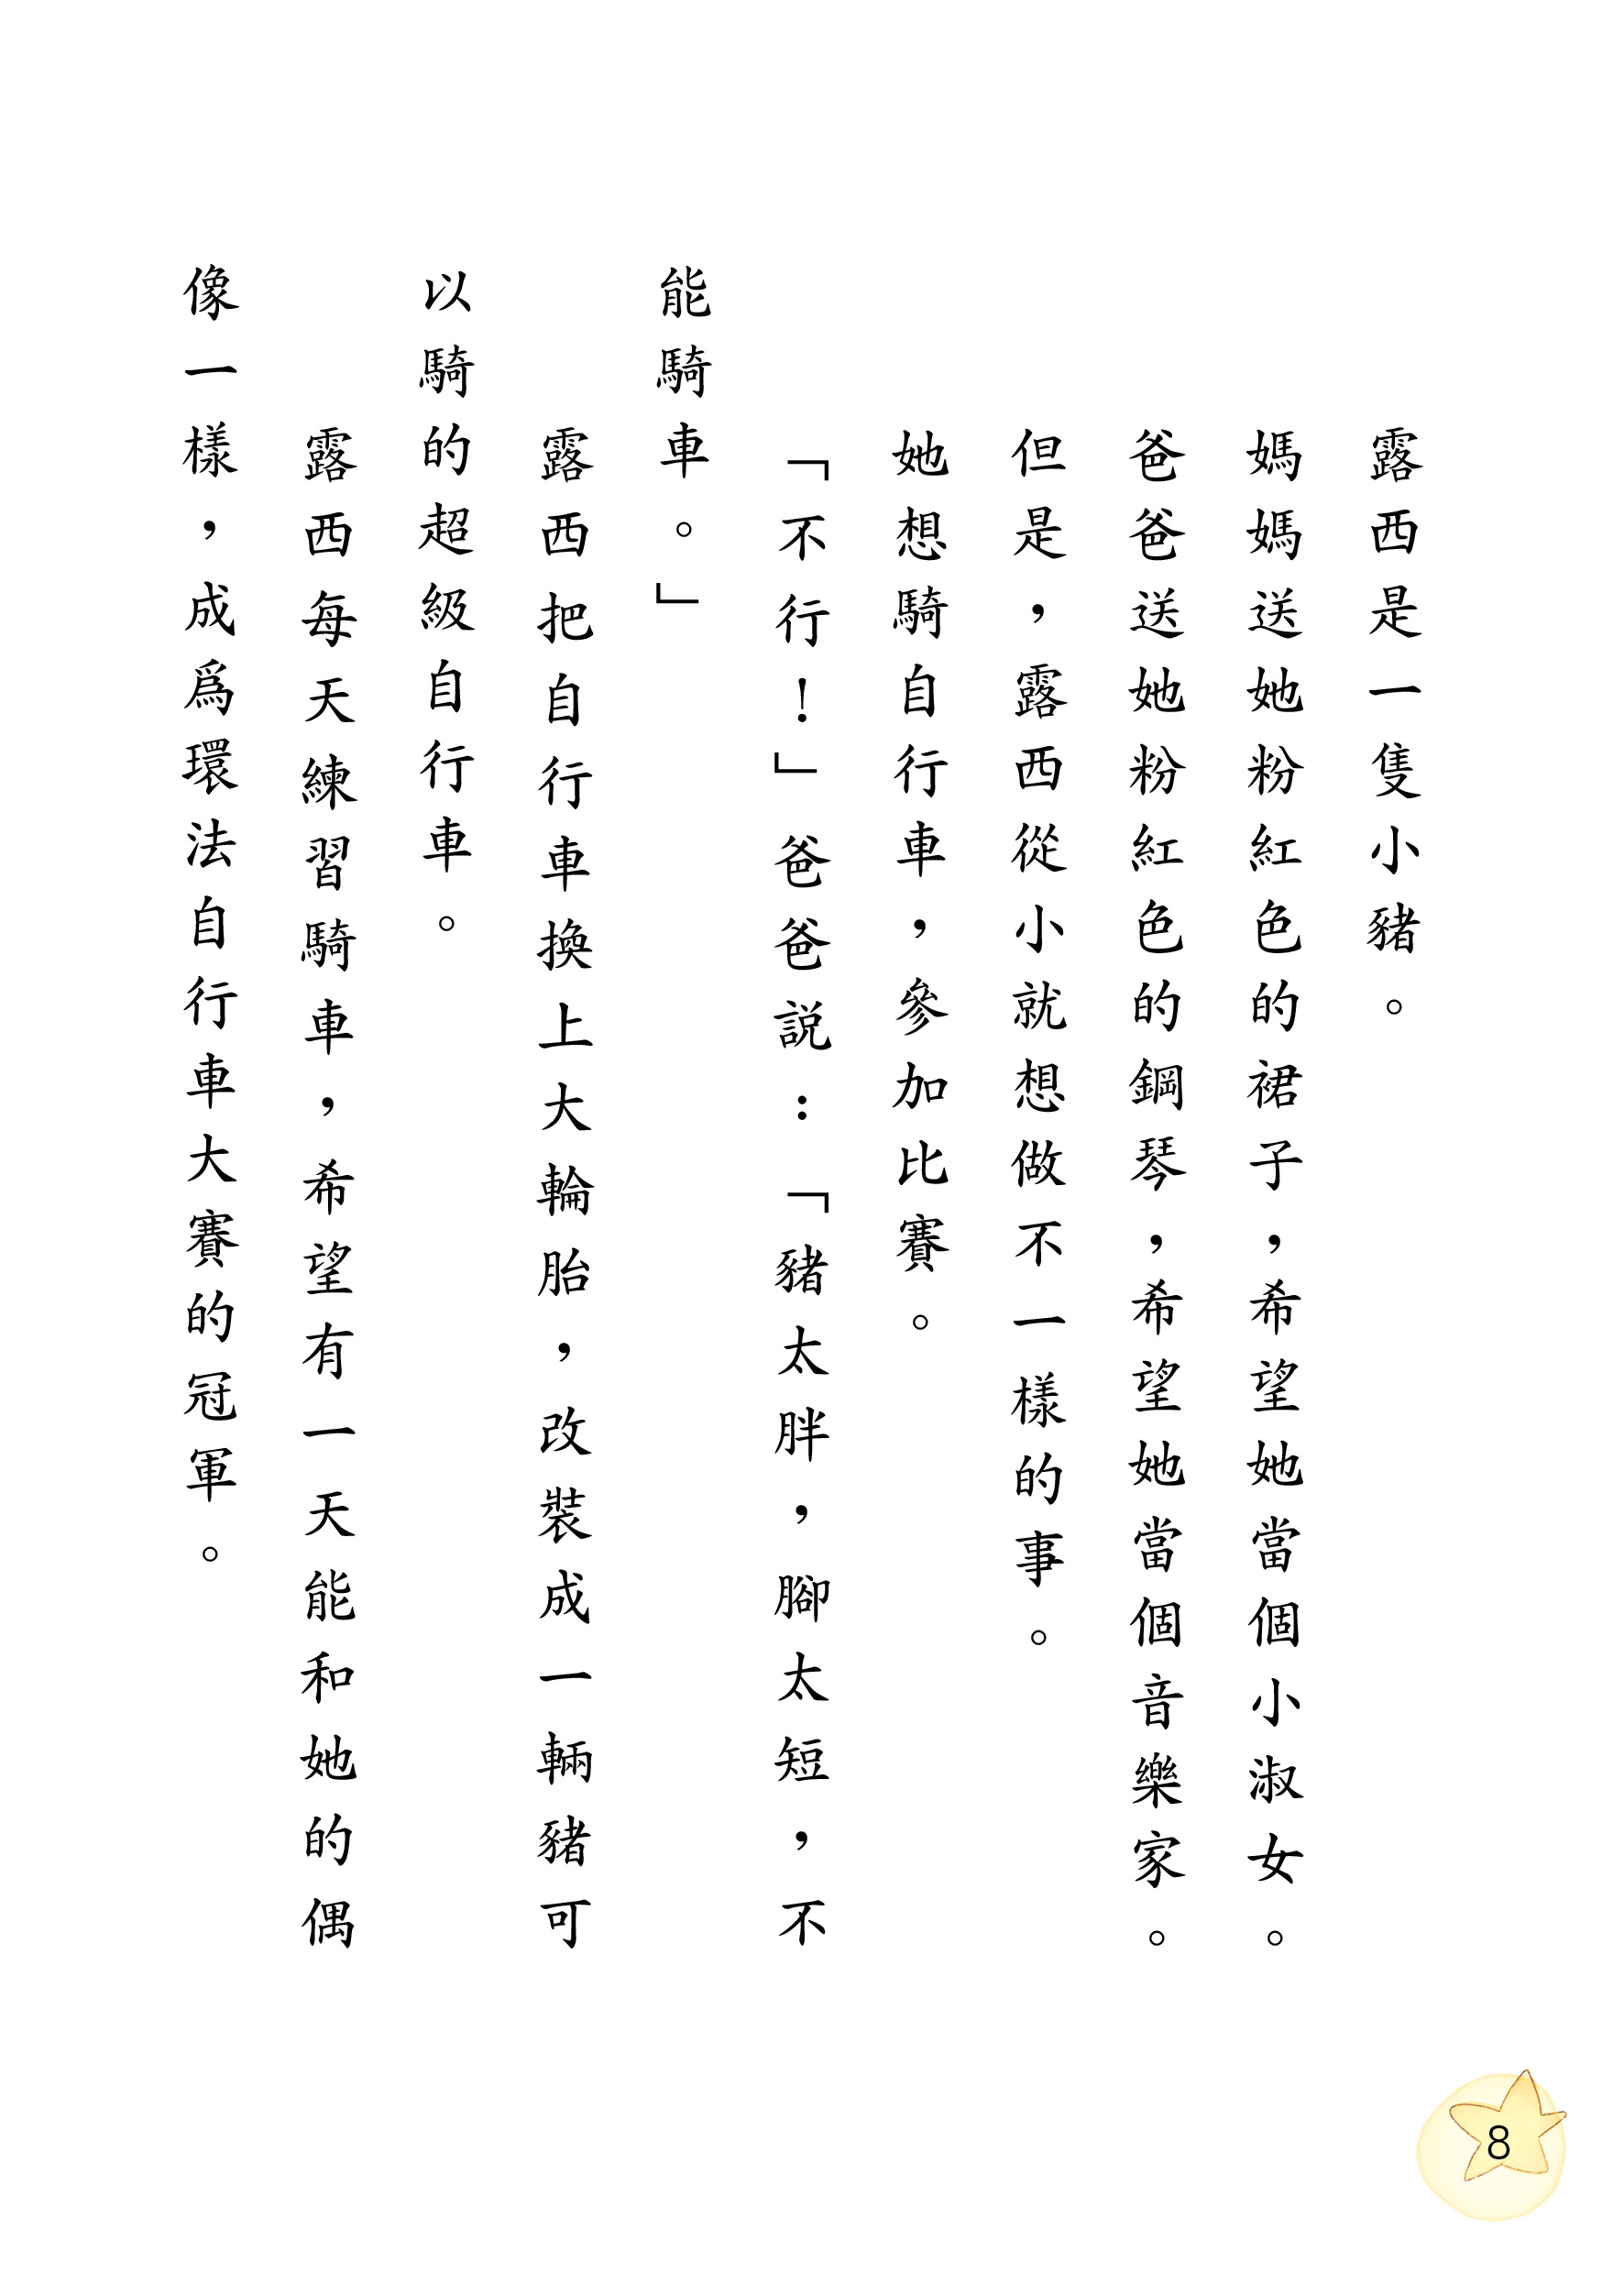 露西是一隻小豬。
媽媽送她粉紅色的裙子，希望她當個小淑女。
爸爸送她粉紅色的鋼琴，希望她當個音樂家。
但是，露西從小就想做不一樣的事。
她想騎自行車，參加比賽。
「不行！」爸爸説：「豬太胖，腳太短，不
能騎車。」
露西把自行車換上大輪胎，改裝成一輛豬可
以騎的超級自行車。
露西每天練習騎車，希望有一天能和她的偶
像一樣，成爲環法自行車大賽的冠軍。
8